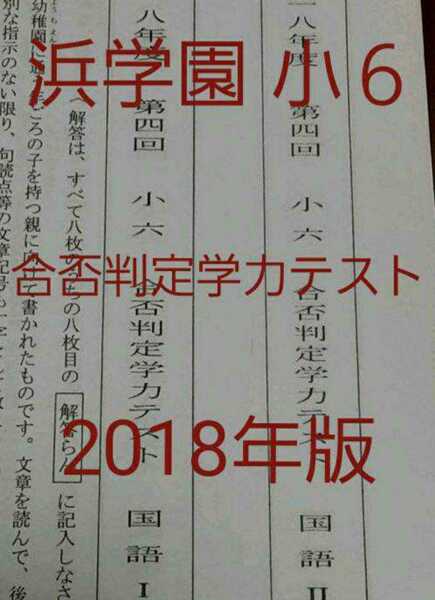 浜学園 小6
合否判定学力テスト
2018年版
一八年度 第四回 小六 合否判定学力テスト 国語 Ⅱ
八年度 第四回 小六 合否判定学力テスト 国語 Ⅰ
解答は、すべて八枚の
八枚目の 解答らん に記入しなさ
ようちえん
幼稚園に通
ころの子を持つ親に
て書かれたものです。文章を読んで、後
別な指示のない限り、句読点等の文章記号も